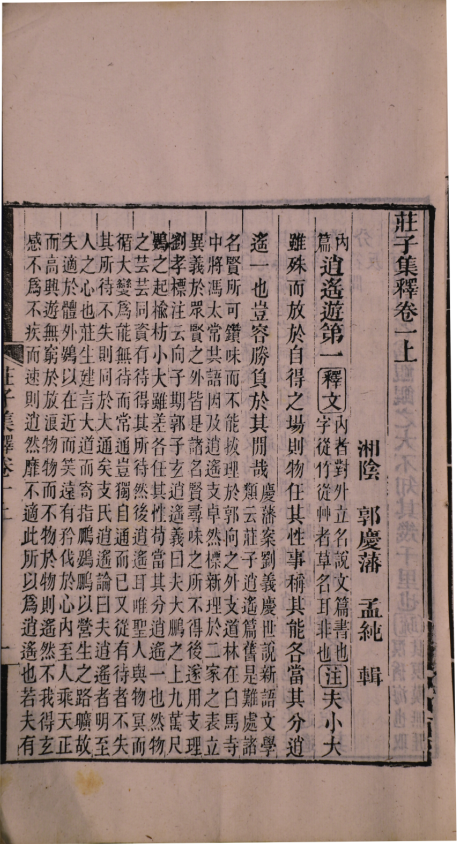 莊子集釋卷一上
湘陰 郭慶藩 孟純 輯
內篇逍遙遊第一釋文內者對外立名說文篇書也字從竹從艸者草名耳非也注夫小大
雖殊而放於自得之場則物任其性事稱其能各當其分逍
遙一也豈容勝負於其閒哉慶藩案劉義慶世說新語文學類云莊子逍遙篇舊是難處諸
名賢所可鑽味而不能拔理於郭向之外支道林在白馬寺
中將馮太常共語因及逍遙支卓然標新理於二家之表立
異義於眾賢之外皆是諸名賢尋味之所不得後遂用支理
劉孝標注云向子期郭子玄逍遙義曰夫大鵬之上九萬尺
鷃之起榆枋小大雖差各任其性苟當其分逍遙一也然物
之芸芸同資有待得其所待然後逍遙耳唯聖人與物冥而
循大變爲能無待而常通豈獨自通而已又從有待者不失
其所待不失則同於大通矣支氏逍遙論曰夫逍遙者明至
人之心也莊生建言大道而寄指鵬鷃鵬以營生之路曠故
失適於體外鷃以在近而笑遠有矜伐於心內至人乘天正
而高興遊無窮於放浪物物而不物於物則遙然不我得玄
感不爲不疾而速則逍然靡不適此所以爲逍遙也若夫有
莊子集釋卷一上
一